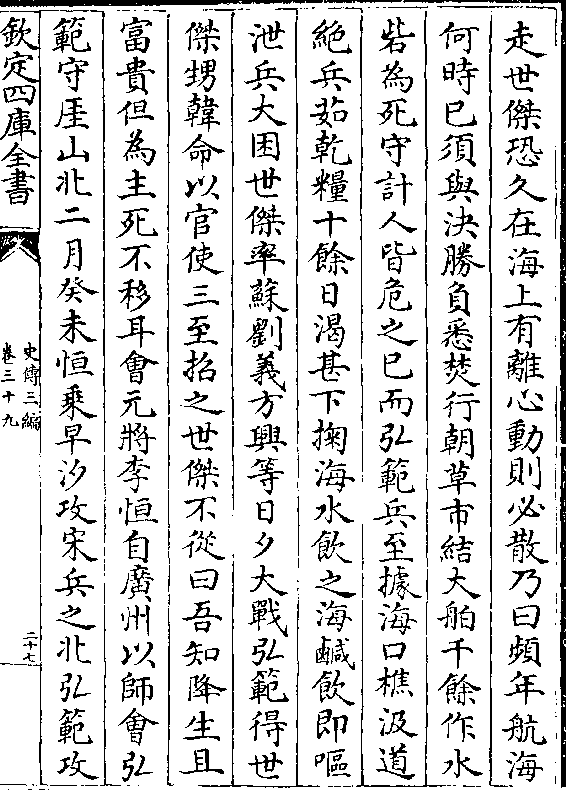 走世傑恐久在海上有離心動則必散乃曰頻年航海
何時已須與決勝負悉焚行朝草市結大舶千餘作水
砦為死守計人皆危之已而弘範兵至據海口樵汲道
絶兵茹乾糧十餘日渴甚下掬海水飲之海鹹飲即嘔
泄兵大困世傑率蘇劉義方興等日夕大戰弘範得世
傑甥韓命以官使三至招之世傑不從曰吾知降生且
富貴但為主死不移耳會元將李恒自廣州以師會弘
範守厓山北二月癸未恒乘早汐攻宋兵之北弘範攻
欽定四庫全書
史傳三編
卷三十九
二十七